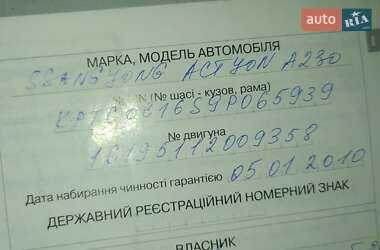 auto RIA
МАРКА, МОДЕЛЬ АВТОМОБІЛЯ
SSANGYONG ACTYON A230
(№ шасі - кузов, рама)
№ двигуна
16195112009358
Дата набирання чинності гарантією 05.01.2010
ДЕРЖАВНИЙ РЕЄСТРАЦІЙНИЙ НОМЕРНИЙ ЗНАК
ВЛАСНИК